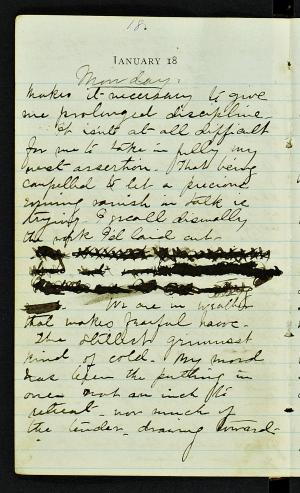 18.
JANUARY 18
Monday.
makes it necessary to give
me prolonged discipline.
It isn't at all difficult
for me to take in fully my
own assertion. That being
compelled to let a precious
evening vanish in talk is
trying. I recall dismally
the work I'd laid out.
We are in weather
that makes fearful havoc.
The stillest grimmest
kind of cold. My mood
has been the putting in
one's not an inch to
retreat - nor much of
the tender - drawing inward.